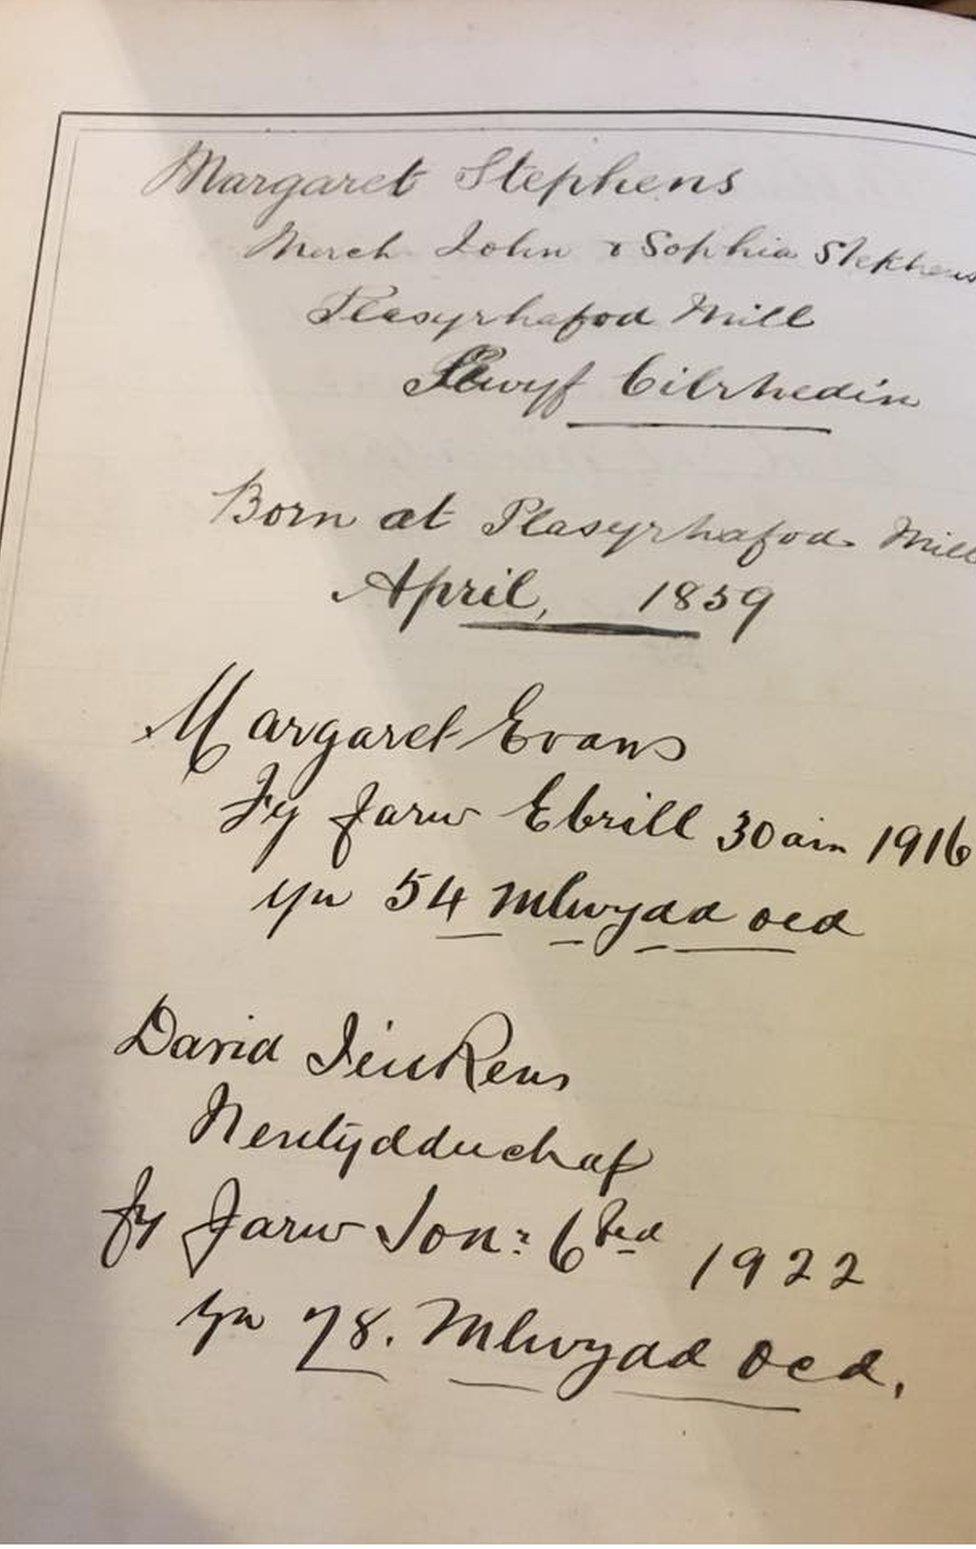 Margaret Stephens
Merch John & Sophia Stephens
Plasyrhafod Mill
Plwyf Cilrhedin
Born at Plasyrhafod Mill
April, 1859
Margaret Evans
Fy farw Ebrill 30ain 1916
yn 54 Mlwydd oed
David Jenkens
Nentydduchaf
fy farw Ion: 6hed 1922
yn 78. Mlwydd oed.